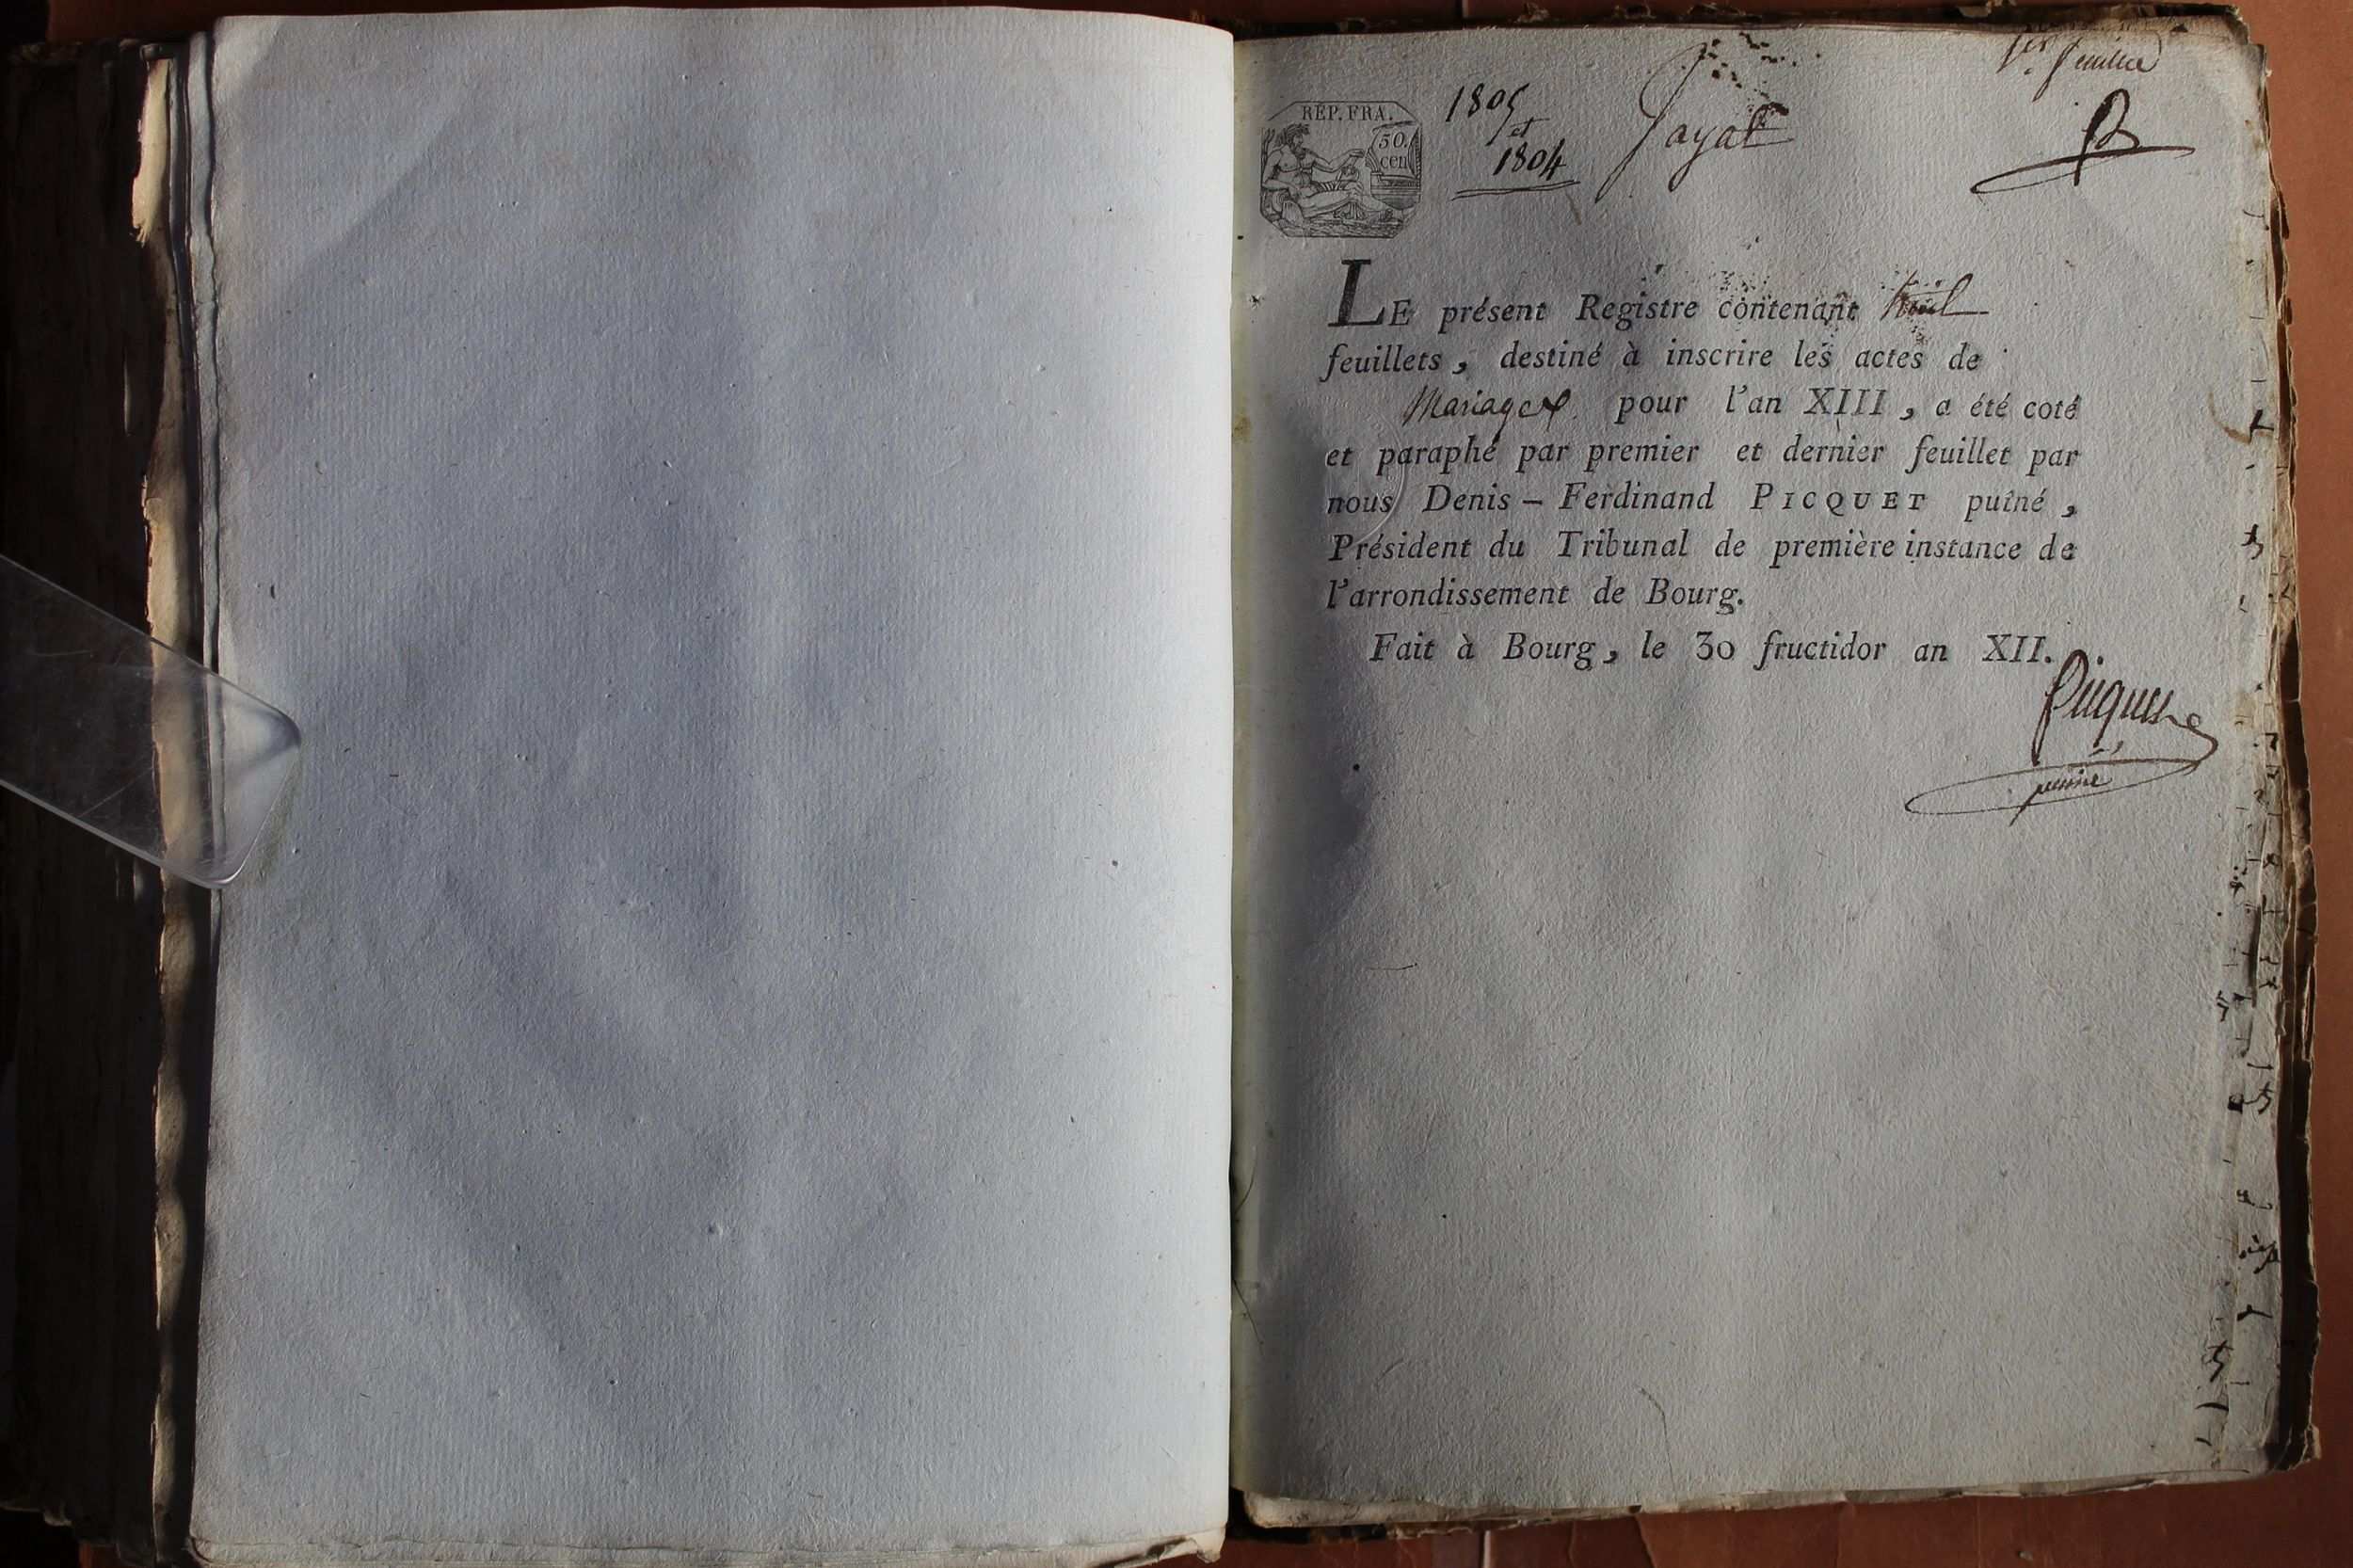 1er feuillet
RÉP. FRA.
50.
cen
1805
et
1804
Jayat
LE présent Registre contenant huit
feuillets, destiné à inscrire les actes de
Mariages pour l'an XIII, a été coté
et paraphé par premier et dernier feuillet par
nous Denis – Ferdinand PICQUET puîné,
Président du Tribunal de première instance de
l'arrondissement de Bourg.
Fait à Bourg, le 30 fructidor an XII.
Picquet
puiné